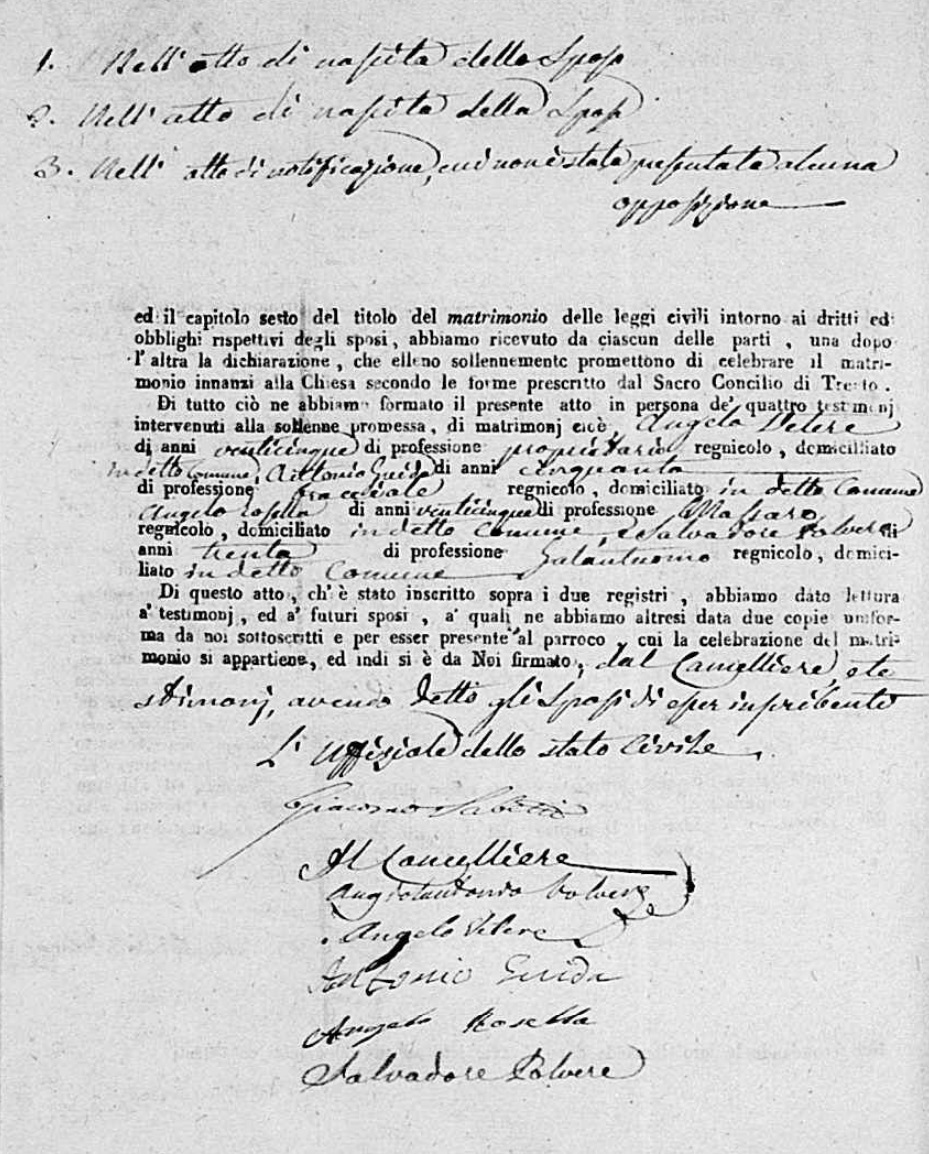 1. Nell' atto di nascita dello Sposo
2. Nell' atto di nascita della Sposa
3. Nell' atto di notificazione, cui non è stata presentata alcuna
opposizione
ed il capitolo sesto del titolo del matrimonio delle leggi civili intorno ai dritti ed
obblighi rispettivi degli sposi, abbiamo ricevuto da ciascun delle parti , una dopo
l'altra la dichiarazione , che elleno sollennemente promettono di celebrare il matri-
monio innanzi alla Chiesa secondo le forme prescritto dal Sacro Concilio di Trento .
Di tutto ciò ne abbiamo formato il presente atto in persona de' quattro testimonj
intervenuti alla sollenne promessa, di matrimonj cioè, Angelo Vetere
di anni venticinque di professione proprietario regnicolo , domiciliato
in detto Comune, Antonio Guida di anni cinquanta
di professione bracciale regnicolo , domiciliato in detto Comune
Angelo Rosella di anni venticinque di professione Massaro
regnicolo , domiciliato in detto Comune, e Salvadore Polvere di
anni trenta di professione Galantuomo regnicolo, domici-
liato in detto Comune
Di questo atto, ch'è stato inscritto sopra i due registri , abbiamo dato lettura
a' testimonj , ed a' futuri sposi , a' quali ne abbiamo altresì data due copie unifor-
ma da noi sottoscritti e per esser presente al parroco , cui la celebrazione del matri-
monio si appartiene, ed indi si è da Noi firmato, dal Cancelliere, e te
stimonj, avendo detto gli Sposi di esser
L' Uffiziale dello stato Civile
Giacomo
Il Cancelliere
Angiolantonio Polvere
Angelo Vetere
Antonio Guida
Angelo Rosella
Salvadore Polvere